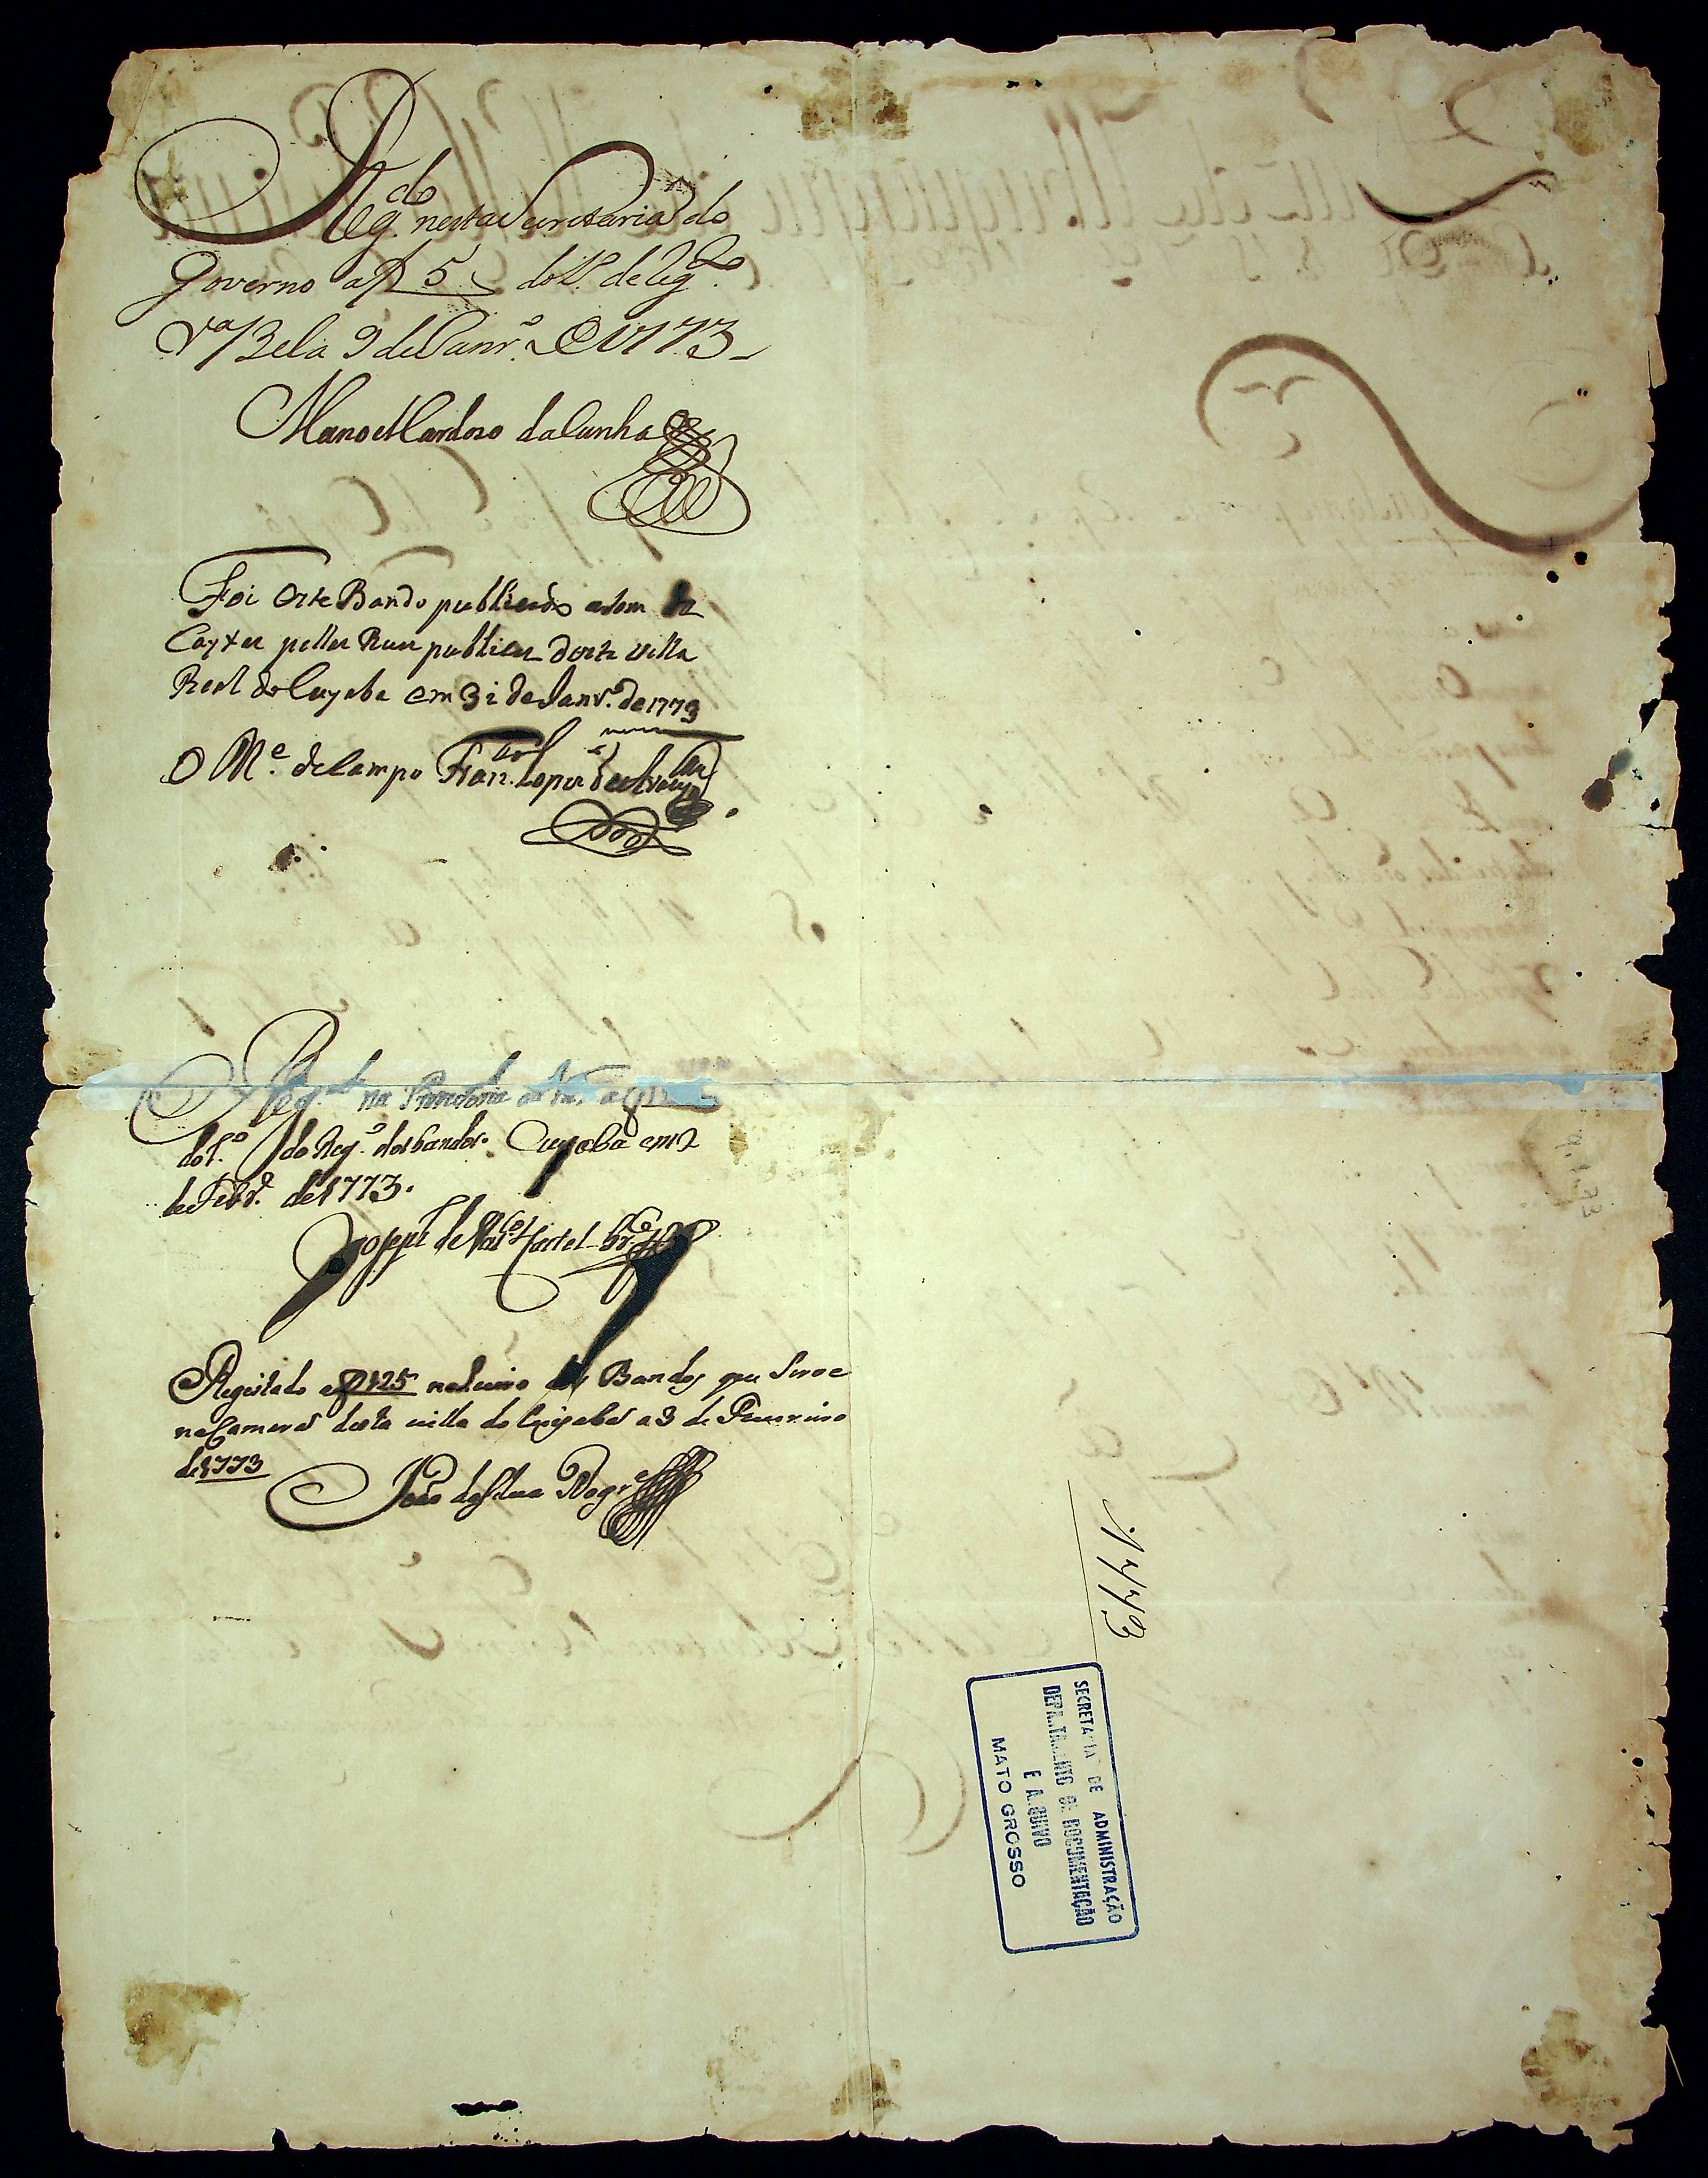 Reg.do nesta Secretaria do
Governo af 5 do L.o de Reg.o
V.a Bela 9 de Janr.o de 1773
Manoel Cardozo da Cunha
Foi este Bando publicado a som de
Cayxas pellas Ruas publicas desta villa
Real do Cuyaba em 31 de Janr.o de 1773
O M.e de Campo Fran.co Lopes de Araujo
Reg.do na Provedoria
do L.o do Reg.o dos bandos. Cuyaba em 2
de Febr.o de 1773.
Joseph de
Registado af 125 no Livro dos Bandos que serve
na Camera desta villa do Cuyaba a 3 de Fevereiro
de 1773
João da Silva Nogr.a
1773
SECRETARIA DE ADMINISTRAÇÃO
DEPARTAMENTO DE DOCUMENTAÇÃO
E ARQUIVO
MATO GROSSO
9.1.73